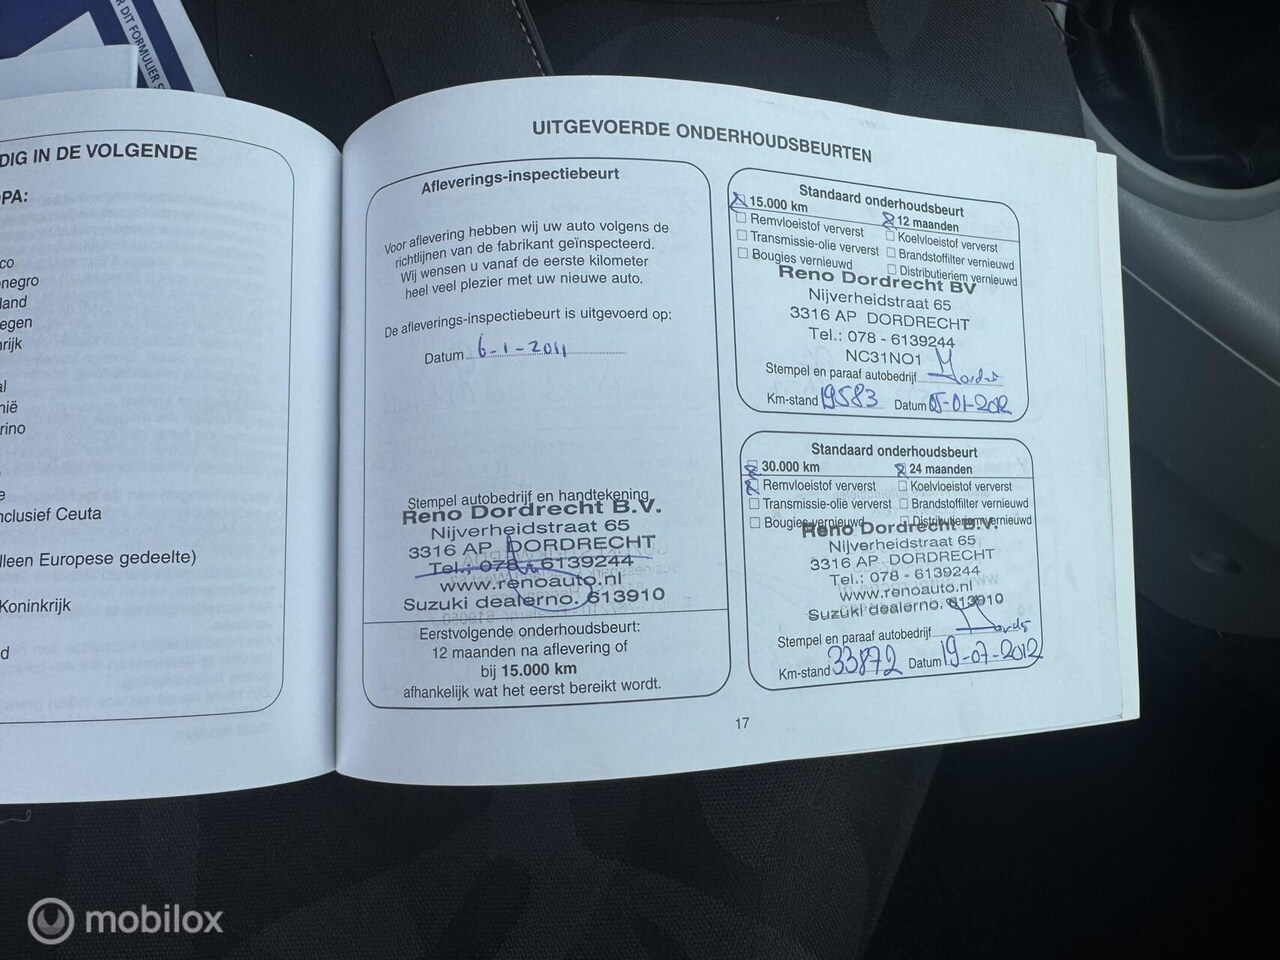 R DIT FORMULIER S
DIG IN DE VOLGENDE
PA:
co
enegro
land
egen
nrijk
al
nië
rino
e
nclusief Ceuta
lleen Europese gedeelte)
Koninkrijk
d
UITGEVOERDE ONDERHOUDSBEURTEN
Afleverings-inspectiebeurt
Voor aflevering hebben wij uw auto volgens de
richtlijnen van de fabrikant geïnspecteerd.
Wij wensen u vanaf de eerste kilometer
heel veel plezier met uw nieuwe auto.
De afleverings-inspectiebeurt is uitgevoerd op:
Datum 6-1-2011
Stempel autobedrijf en handtekening
Reno Dordrecht B.V.
Nijverheidstraat 65
3316 AP DORDRECHT
Tel.: 078 - 6139244
www.renoauto.nl
Suzuki dealerno. 613910
Eerstvolgende onderhoudsbeurt:
12 maanden na aflevering of
bij 15.000 km
afhankelijk wat het eerst bereikt wordt.
Standaard onderhoudsbeurt
15.000 km 12 maanden
Remvloeistof ververst Koelvloeistof ververst
Transmissie-olie ververst Brandstoffilter vernieuwd
Bougies vernieuwd Distributieriem vernieuwd
Reno Dordrecht BV
Nijverheidstraat 65
3316 AP DORDRECHT
Tel.: 078 - 6139244
NC31NO1
Stempel en paraaf autobedrijf
Km-stand 19583 Datum 05-01-2012
Standaard onderhoudsbeurt
30.000 km 24 maanden
Remvloeistof ververst Koelvloeistof ververst
Transmissie-olie ververst Brandstoffilter vernieuwd
Bougies vernieuwd Distributieriem vernieuwd
Reno Dordrecht B.V.
Nijverheidstraat 65
3316 AP DORDRECHT
Tel.: 078 - 6139244
www.renoauto.nl
Suzuki dealerno. 613910
Stempel en paraaf autobedrijf
Km-stand 33872 Datum 19-07-2012
17
mobilox